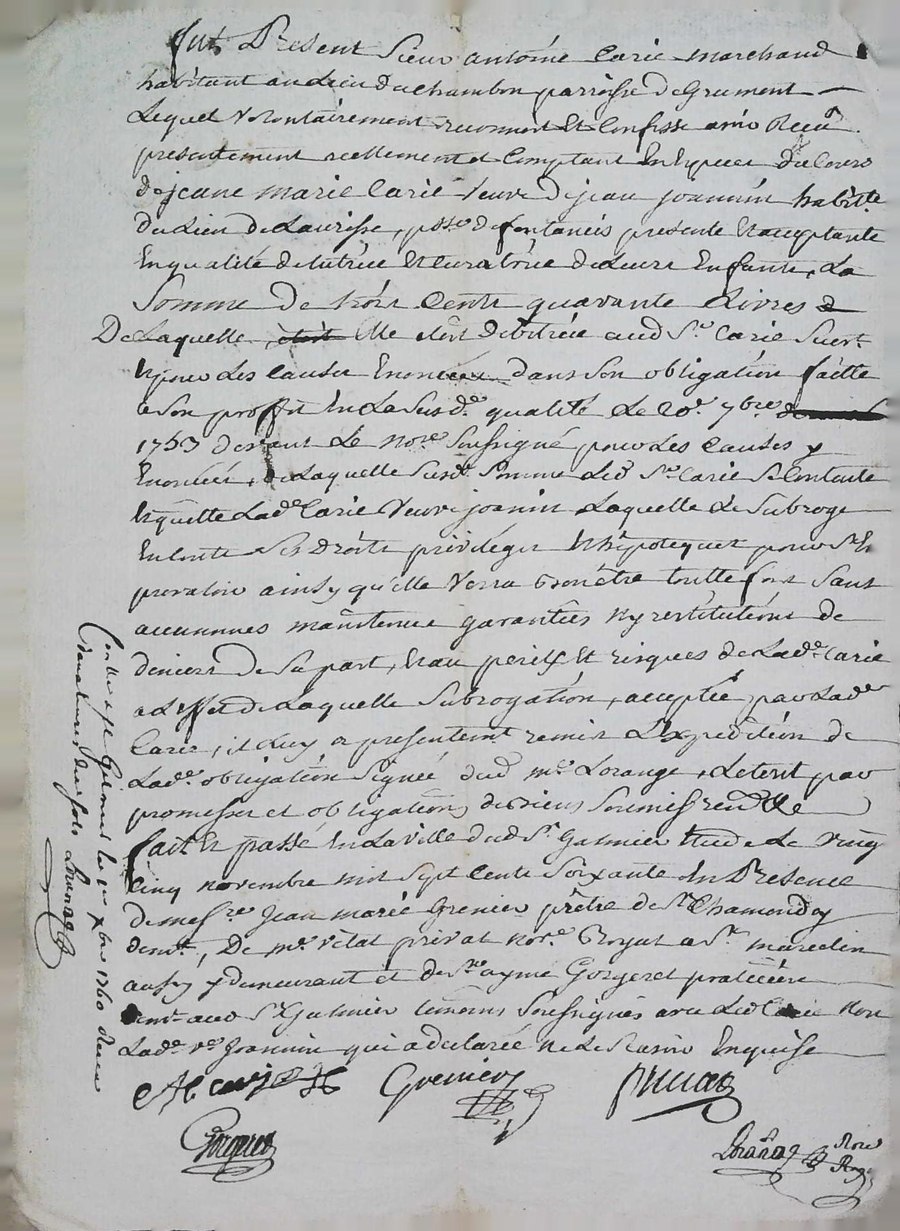 fut Present Sieur antoine Carie marchand
habitant au Lieu du chambon parroisse de Grument
Lequel volontairement reconnoit Et Confesse avoir Receu
presentement reellement et Comptant En Especes du Cours
de jeane marie Carie veuve de jean joannin habitte
du Lieu de Lavrisse, psse de fontaneis presente Et acceptante
En qualité de tutrice Et curatrice de Leurs Enfants, La
Somme de trois Cents quarante Livres
De Laquelle Elle étoit débitrice aud Sr Carie Suivt
Et pour Les causes Enoncées dans Son obligation faitte
a Son proffit En La Susde qualité Le 20e 7bre
1753 devant Le nore Soussigné pour Les Causes y
Enoncées, de Laquelle Susde Somme Led Sr Carie Se Contente
Et quitte Lade Carie veuve joanin Laquelle Le Subroge
En touts Ses Droits privileges Et hipoteques pour S'En
prevaloir ainsy qu'elle verra bon être touttefois Sans
aucunnes maintenue garanties Ny restitutions de
deniers de Sa part, Et au perils Et risques de Lade Carie
a L'Effet de Laquelle Subrogation, acceptée par Lade
Carie, il Luy a presentemt remis L'Expédition de
Lade obligation Signée dud me Lorange, Le tout par
promesses et obligations de biens Soumiss rend
fait Et passé En La ville dud St Galmier Etude Le vingt
Cinq novembre mil Sept Cents Soixante En Presence
de messre Jean marie Grenier prêtre de St Chamond y
demt, De me vital privat nore Royal a St marcelin
aussy y demeurant et de Sr aymé Gorgeret praticien
demt aud St Galmier temoins Soussignés avec Led Carie Non
Lade ve Joannin qui a déclarée ne Le Scavoir Enquise
A Carie
Grenier
Privat
Gorgeret
Lorange Nore
Roy
Conllé a St Galmier Le 1er Xbre 1760 Receu
quatre Sols Lorange